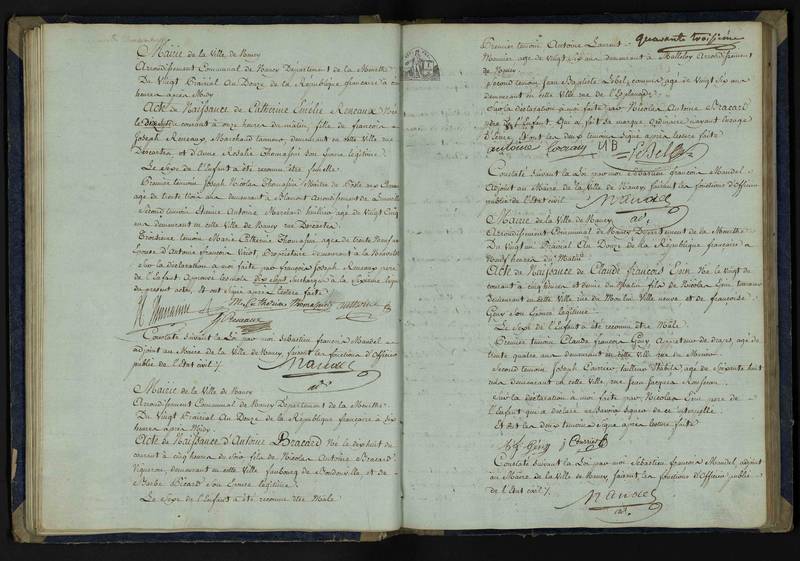 Mairie de la Ville de Nancy
Arrondissement Communal de Nancy Département de la Meurthe
Du Vingt Prairial An Douze de la République française à
heures après Midy
Acte de Naissance de Catherine Emélie Reneaux Née
le dix sept du courant à onze heures du matin, fille de françois
Joseph Reneaux, Marchand tanneur, demeurant en cette Ville rue
Descartes et d'Anne Rosalie Thomassin son Epouse légitime.
Le Sexe de l'Enfant a été reconnu être femelle.
Premier temoin Joseph Nicolas Thomassin Maitre de Poste aux Chevaux
agé de trente trois ans demeurant à Blamont arrondissement de Lunéville
Second temoin Etienne Antoine Marchand huilier agé de Vingt Cinq
ans demeurant en cette Ville de Nancy rue Descartes
Troisieme temoin Marie Catherine Thomassin agée de trente Neuf ans
Epouse d'Antoine françois Propriétaire demeurant à la
Sur la déclaration à moi faite par françois Joseph Reneaux pere
de l'Enfant Approuvé le mot dix sept Surchargé à la Sixieme ligne
du present acte, Et ont Signé après lecture faite
M. Catherine Thomassin
fJ Reneaux
Constaté suivant la Loi par moi Sébastien françois Mandel
adjoint au Maire de la Ville de Nancy, faisant les fonctions d'Officier
public de l'Etat civil
Mandel
adj.
Mairie de la Ville de Nancy
Arrondissement Communal de Nancy Département de la Meurthe
Du Vingt Prairial An Douze de la République française à Six
heures après Midy
Acte de Naissance d'Antoine Bracard Né le dix huit du
courant à cinq heures du Soir fils de Nicolas Antoine Bracard
Vigneron, demeurant en cette Ville faubourg de Boudonville, et de
Barbe Bécard Son Epouse légitime.
Le Sexe de l'Enfant a été reconnu être Mâle.
quarante troisième
Premier temoin Antoine Laurent
agé de Vingt six ans demeurant à Malleloy Arrondissement
de Nancy
Second temoin Jean Baptiste Lebel, commis agé de Vingt six ans
demeurant en cette Ville rue de l'Esplanade.
Sur la déclaration à moi faite par Nicolas Antoine Bracard
pere de l'Enfant Qui a fait sa marque Ordinaire n'ayant l'usage
d'Ecrire, Et ont les deux temoins Signé après lecture faite
antoine JB Lebel
Constaté suivant la Loi par moi Sébastien françois Mandel
Adjoint au Maire de la Ville de Nancy, faisant les fonctions d'Officier
public de l'Etat civil
Mandel
adj.
Mairie de la Ville de Nancy
Arrondissement Communal de Nancy Département de la Meurthe
Du Vingt un Prairial An Douze de la République française à
Neuf heures du Matin
Acte de Naissance de Claude françois Né le Vingt du
courant à cinq heures et demie du Matin fils de Nicolas
demeurant en cette Ville rue du Moulin Ville neuve et de françoise
Gény son Epouse légitime
Le Sexe de l'Enfant a été reconnu être Mâle.
Premier temoin Claude françois Gény Appreteur de draps agé de
trente quatre ans demeurant en cette Ville rue du
Second temoin Joseph Courrier tailleur d'habits agé de Soixante huit
ans demeurant en cette Ville, rue Jean Jacques Rousseau
Sur la déclaration à moi faite par Nicolas pere de
l'Enfant qui a déclaré ne Savoir Signer de ce interpellé
Et ont les deux temoins Signé après lecture faite
Gény J Courrier
Constaté suivant la Loi par moi Sébastien françois Mandel, adjoint
au Maire de la Ville de Nancy, faisant les fonctions d'Officier public
de l'Etat civil
Mandel
adj.